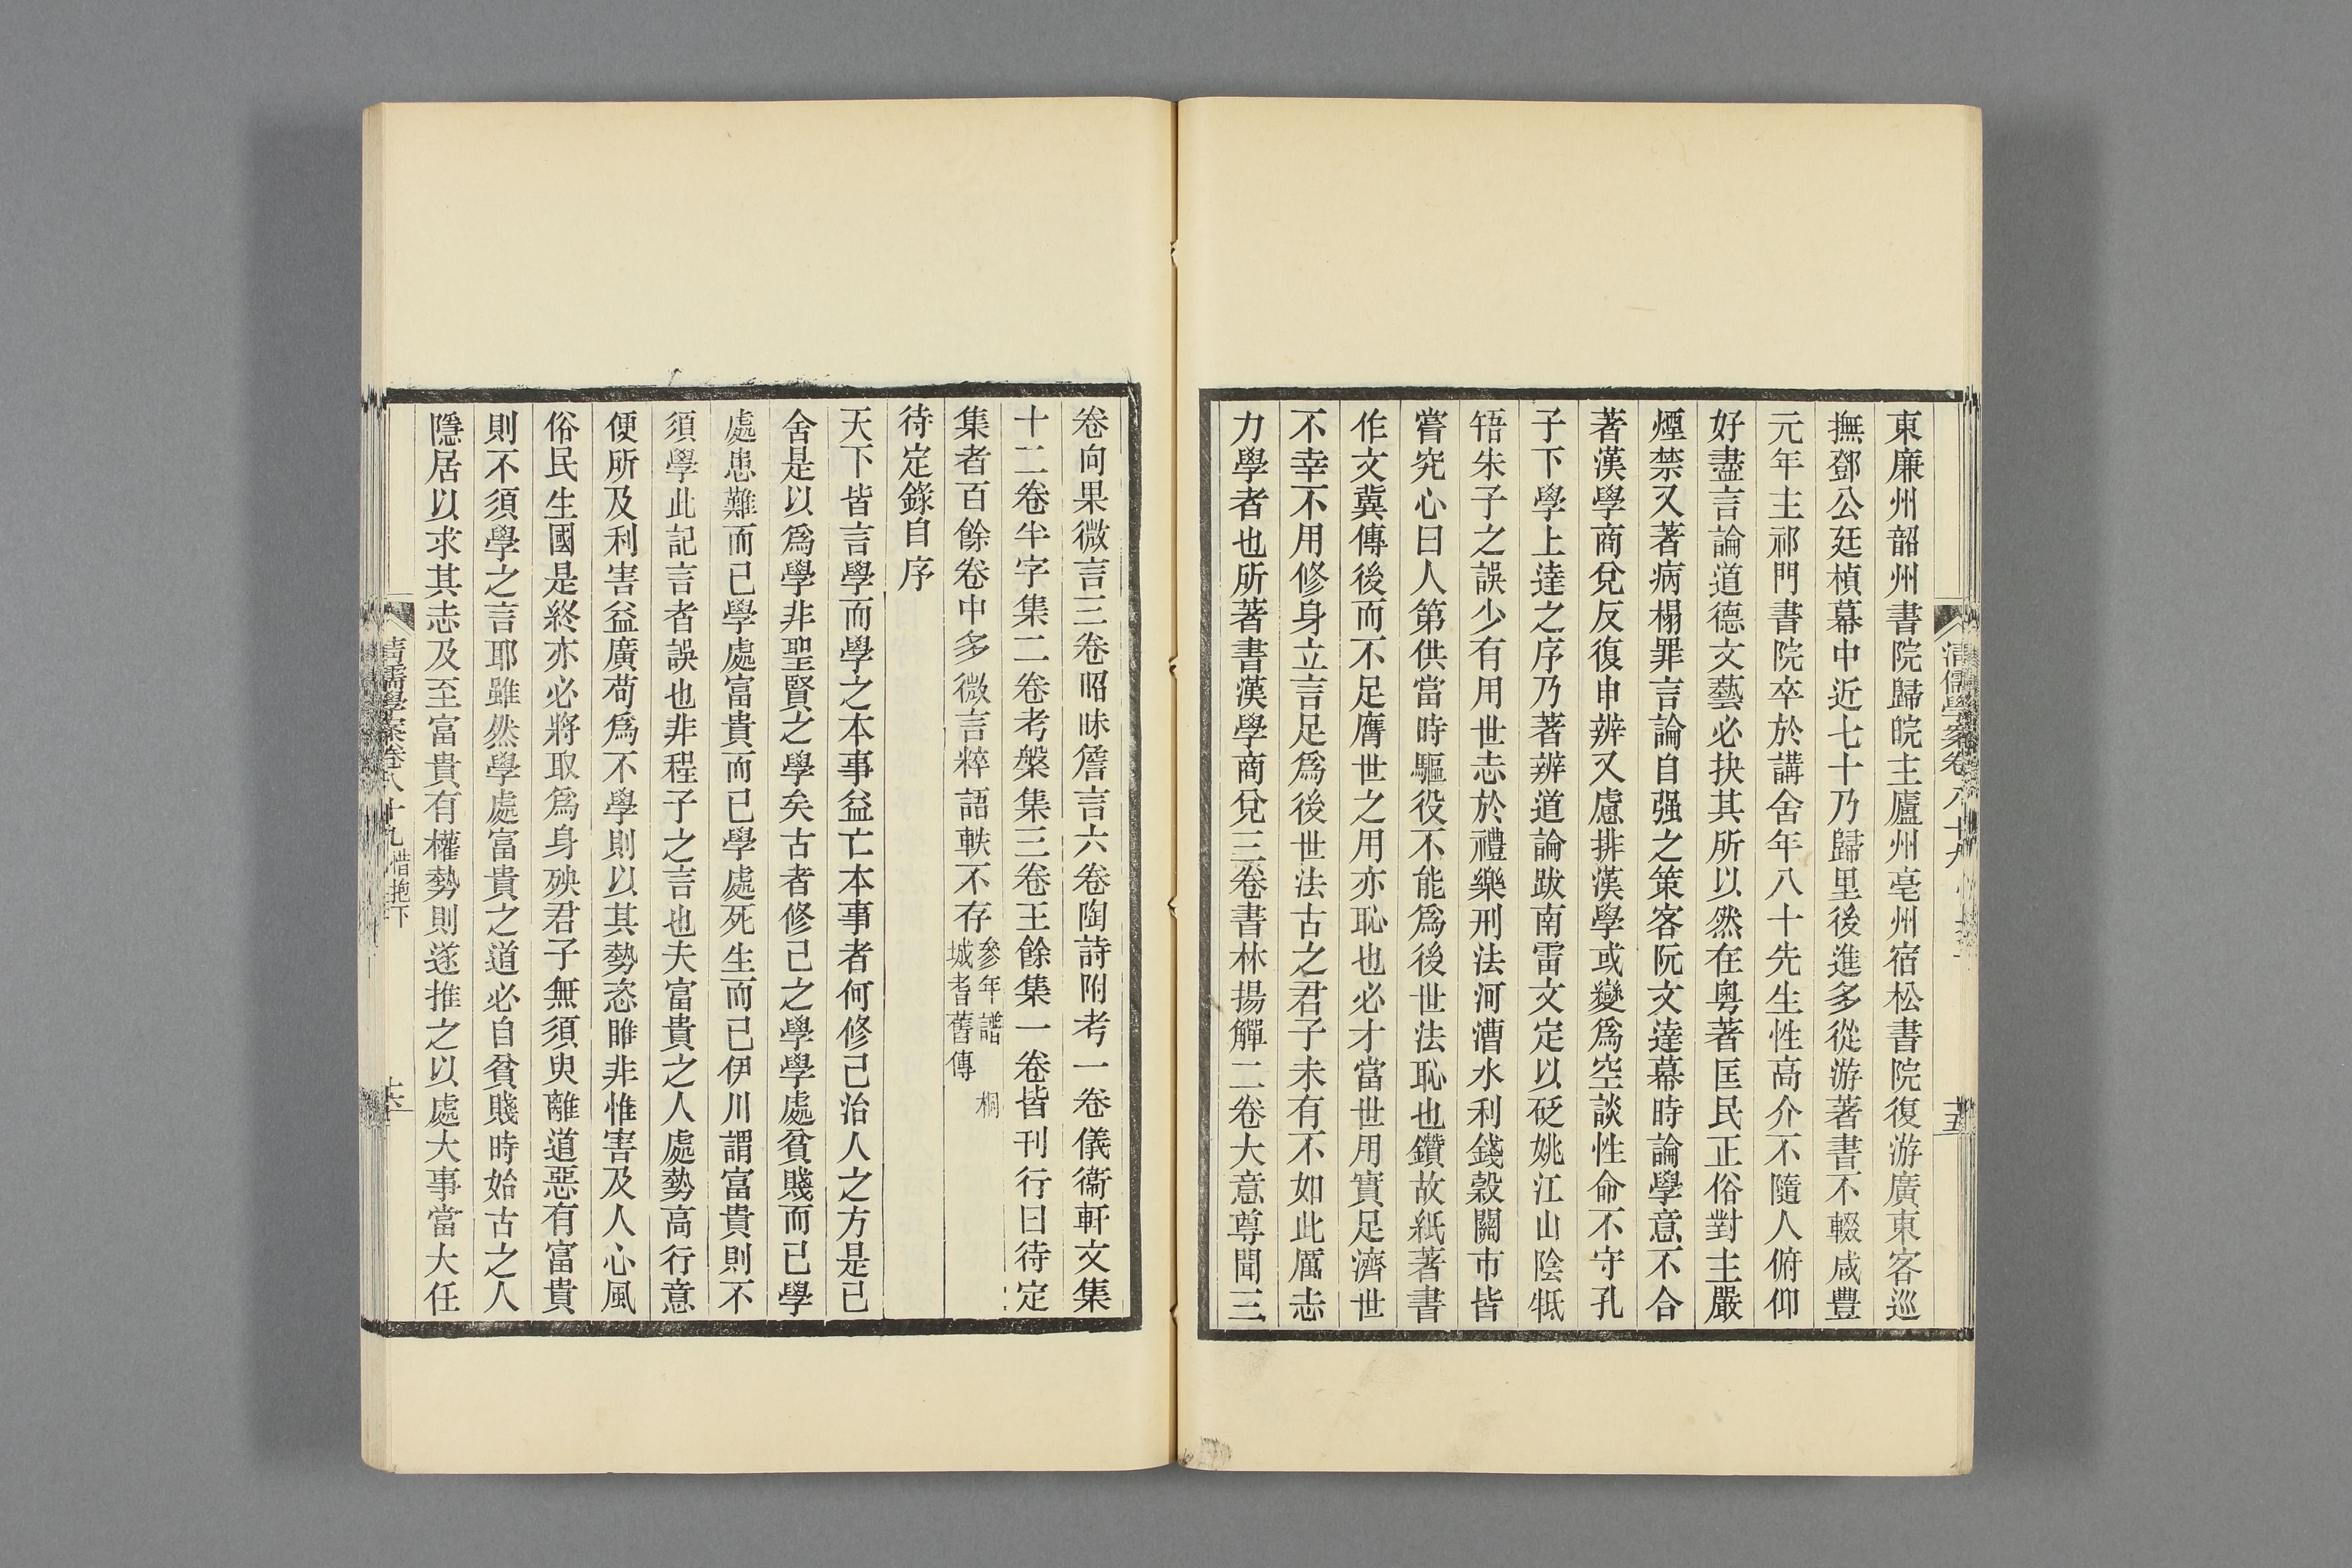 東廉州韶州書院歸皖主廬州亳州宿松書院復游廣東客巡
撫鄧公廷楨幕中近七十乃歸里後進多從游著書不輟咸豐
元年主祁門書院卒於講舍年八十先生性高介不隨人俯仰
好盡言論道德文藝必抉其所以然在粵著匡民正俗對主嚴
煙禁又著病榻罪言論自强之策客阮文達幕時論學意不合
著漢學商兌反復申辨又慮排漢學或變爲空談性命不守孔
子下學上達之序乃著辨道論跋南雷文定以砭姚江山陰牴
牾朱子之誤少有用世志於禮樂刑法河漕水利錢穀關市皆
嘗究心曰人第供當時驅役不能爲後世法恥也鑽故紙著書
作文冀傳後而不足膺世之用亦恥也必才當世用實足濟世
不幸不用修身立言足爲後世法古之君子未有不如此厲志
力學者也所著書漢學商兌三卷書林揚觶二卷大意尊聞三
清儒學案卷八十九
十五
卷向果微言三卷昭昧詹言六卷陶詩附考一卷儀衞軒文集
十二卷半字集二卷考槃集三卷王餘集一卷皆刊行曰待定
集者百餘卷中多微言粹語軼不存參年譜 桐
城耆舊傳
待定錄自序
天下皆言學而學之本事益亡本事者何修己治人之方是已
舍是以爲學非聖賢之學矣古者修己之學學處貧賤而已學
處患難而已學處富貴而已學處死生而已伊川謂富貴則不
須學此記言者誤也非程子之言也夫富貴之人處勢高行意
便所及利害益廣苟爲不學則以其勢恣睢非惟害及人心風
俗民生國是終亦必將取爲身殃君子無須臾離道惡有富貴
則不須學之言耶雖然學處富貴之道必自貧賤時始古之人
隱居以求其志及至富貴有權勢則遂推之以處大事當大任
清儒學案卷八十九 惜抱下
十六